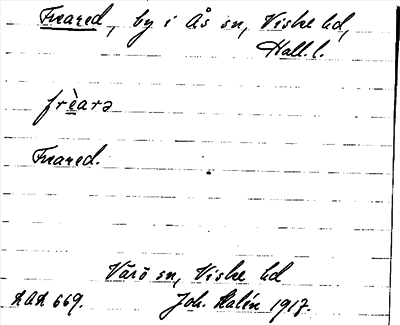 Frared, by i Ås sn, Viske hd,
Hall. l.
frèarə
Frared.
Värö sn, Viske hd
Joh. Kalén 1917.